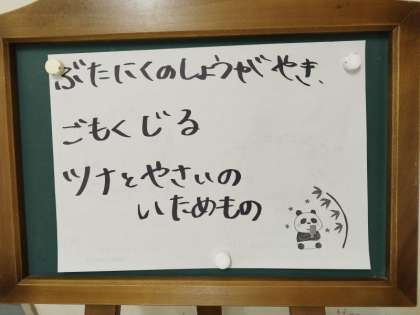 ぶたにくのしょうがやき、
ごもくじる
ツナとやさいの
いためもの